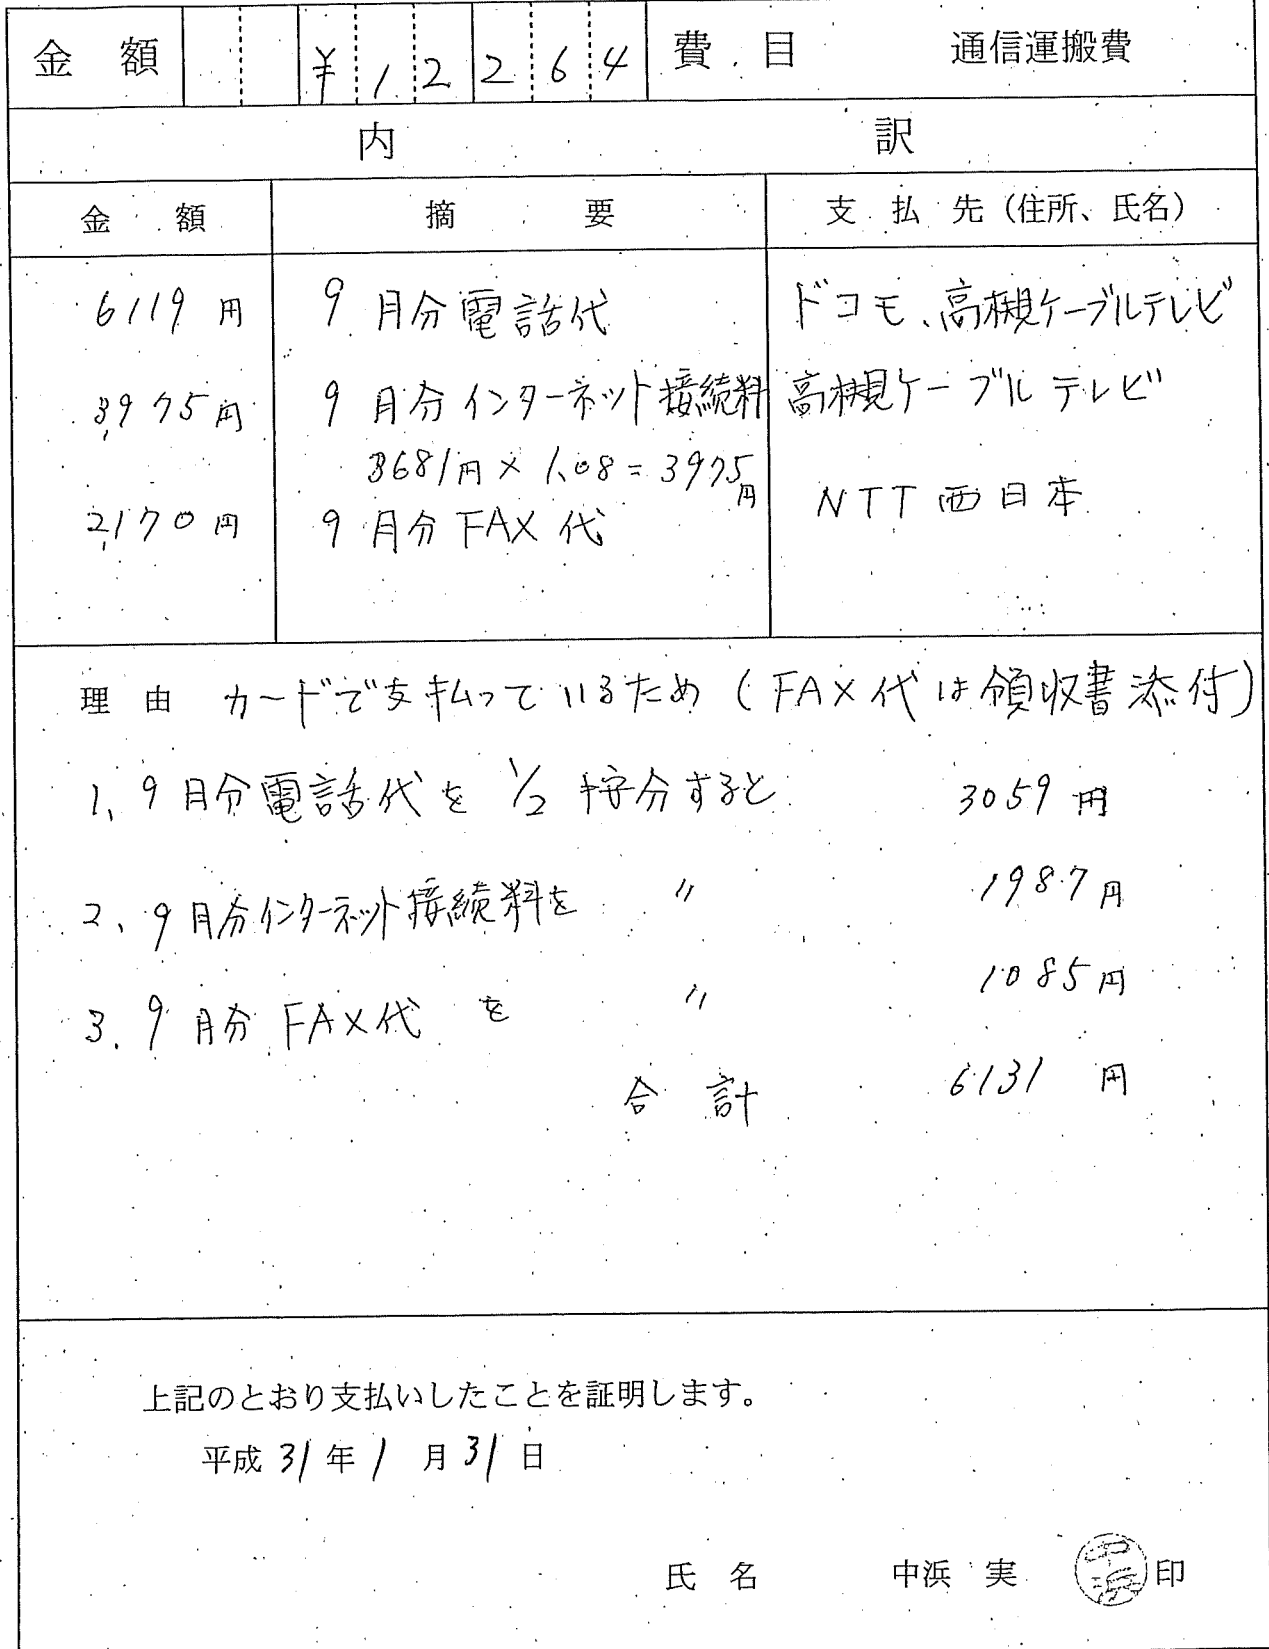 金額 ¥12264 費目 通信運搬費
内訳
金額 摘要 支払先（住所、氏名）
6119円 9月分電話代 ドコモ、高槻ケーブルテレビ
3,975円 9月分インターネット接続料 高槻ケーブルテレビ
3681円×1.08=3975円
2,170円 9月分FAX代 NTT西日本
理由 カードで支払っているため（FAX代は領収書添付）
1、9月分電話代を1/2按分すると 3059円
2、9月分インターネット接続料を 〃 1987円
3. 9月分FAX代を 〃 1085円
合計 6131円
上記のとおり支払いしたことを証明します。
平成31年1月31日
氏名 中浜 実 中浜 印